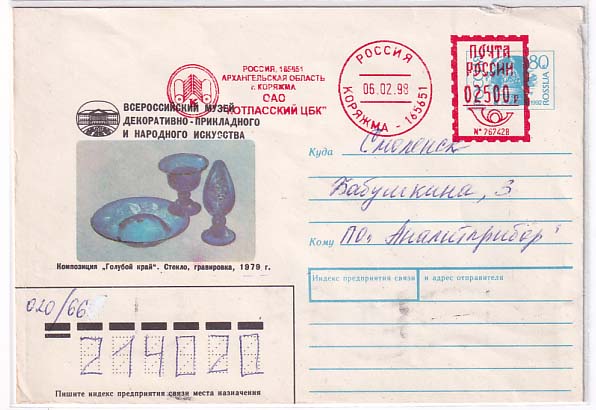 РОССИЯ, 165651
АРХАНГЕЛЬСКАЯ ОБЛАСТЬ
г. КОРЯЖМА
ОАО
"КОТЛАССКИЙ ЦБК"
РОССИЯ
06.02.98
КОРЯЖМА - 165651
ПОЧТА
РОССИИ
02500 р
№ 767428
80
ROSSIJA
1992
ВСЕРОССИЙСКИЙ МУЗЕЙ
ДЕКОРАТИВНО-ПРИКЛАДНОГО
И НАРОДНОГО ИСКУССТВА
Композиция „Голубой край". Стекло, гравировка, 1979 г.
Куда Смоленск
Бабушкина, 3
Кому ПО „Аналитприбор"
Индекс предприятия связи и адрес отправителя
020/66
214020
Пишите индекс предприятия связи места назначения